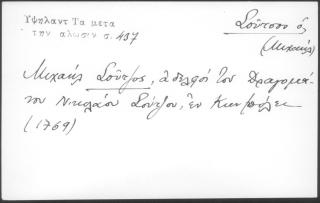 Ὑψηλαντ Τα μετα
την αλωσιν σ. 437
Σοῦτσος ὁ
(Μιχαήλ)
Μιχαήλ Σοῦτζος, ἀδελφὸς τοῦ Δραγομά-
νου Νικολάου Σούτζου, ἐν Κων/πόλει
(1769)